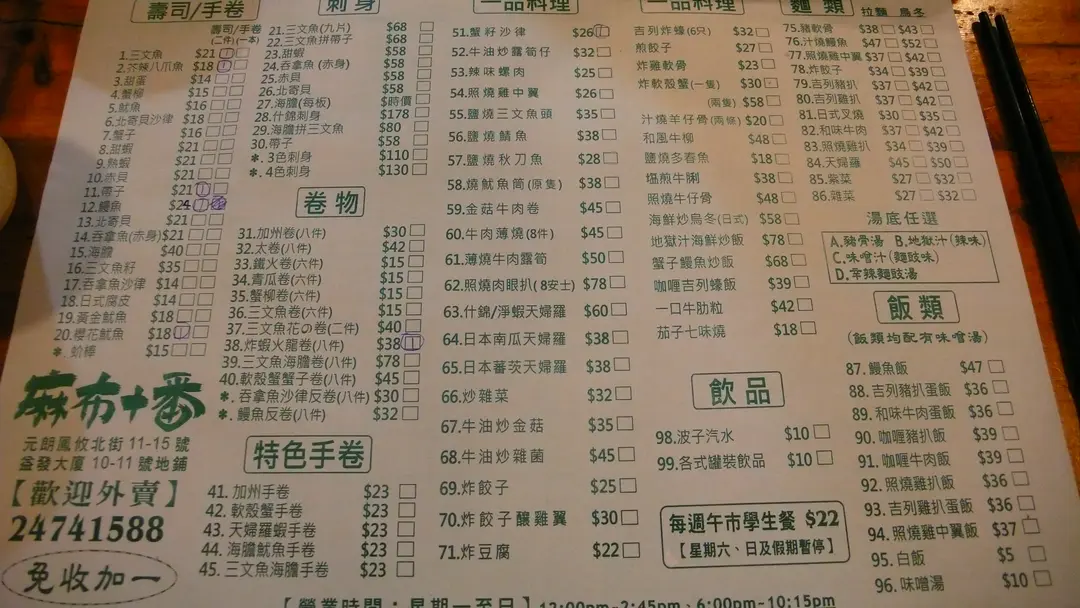 壽司/手卷
壽司/手卷
(二件)(一本)
1.三文魚 $21
2.芥辣八爪魚 $18
3.甜蛋 $14
4.蟹柳 $15
5.魷魚 $16
6.北寄貝沙律 $18
7.蟹子 $16
8.甜蝦 $21
9.熟蝦 $21
10.赤貝 $21
11.帶子 $21
12.鰻魚 $24
13.北寄貝 $21
14.吞拿魚(赤身) $21
15.海膽 $40
16.三文魚籽 $35
17.吞拿魚沙律 $14
18.日式腐皮 $14
19.黃金魷魚 $18
20.櫻花魷魚 $18
*.蚧棒 $15
麻布十番
元朗鳳攸北街 11-15 號
益發大廈 10-11 號地鋪
【歡迎外賣】
24741588
免收加一
刺身
21.三文魚(九片) $68
22.三文魚拼帶子 $68
23.甜蝦 $58
24.吞拿魚(赤身) $58
25.赤貝 $58
26.北寄貝 $58
27.海膽(每板) $時價
28.什錦刺身 $178
29.海膽拼三文魚 $80
30.帶子 $58
*.3色刺身 $110
*.4色刺身 $130
卷物
31.加州卷(八件) $30
32.太卷(八件) $42
33.鐵火卷(六件) $15
34.青瓜卷(六件) $15
35.蟹柳卷(六件) $15
36.三文魚卷(六件) $15
37.三文魚花の卷(二件) $40
38.炸蝦火龍卷(八件) $38
39.三文魚海膽卷(八件) $78
40.軟殼蟹蟹子卷(八件) $45
*.吞拿魚沙律反卷(八件) $30
*.鰻魚反卷(八件) $32
特色手卷
41.加州手卷 $23
42.軟殼蟹手卷 $23
43.天婦羅蝦手卷 $23
44.海膽魷魚手卷 $23
45.三文魚海膽手卷 $23
一品料理
51.蟹籽沙律 $26
52.牛油炒露筍仔 $32
53.辣味螺肉 $25
54.照燒雞中翼 $26
55.鹽燒三文魚頭 $35
56.鹽燒鯖魚 $38
57.鹽燒秋刀魚 $28
58.燒魷魚筒(原隻) $38
59.金菇牛肉卷 $45
60.牛肉薄燒(8件) $45
61.薄燒牛肉露筍 $50
62.照燒肉眼扒(8安士) $78
63.什錦/淨蝦天婦羅 $60
64.日本南瓜天婦羅 $38
65.日本蕃茨天婦羅 $38
66.炒雜菜 $32
67.牛油炒金菇 $35
68.牛油炒雜菌 $45
69.炸餃子 $25
70.炸餃子釀雞翼 $30
71.炸豆腐 $22
一品料理
吉列炸蠔(6只) $32
煎餃子 $27
炸雞軟骨 $23
炸軟殼蟹(一隻) $30
(兩隻) $58
汁燒羊仔骨(兩條) $20
和風牛柳 $48
鹽燒多春魚 $18
煏煎牛脷 $38
照燒牛仔骨 $48
海鮮炒烏冬(日式) $58
地獄汁海鮮炒飯 $78
蟹子鰻魚炒飯 $68
咖喱吉列蠔飯 $39
一口牛肋粒 $42
茄子七味燒 $18
飲品
98.波子汽水 $10
99.各式罐裝飲品 $10
每週午市學生餐 $22
【星期六、日及假期暫停】
麵類
拉麵 烏冬
75.豬軟骨 $38 $43
76.汁燒鰻魚 $47 $52
77.照燒雞中翼 $37 $42
78.炸餃子 $34 $39
79.吉列豬扒 $37 $42
80.吉列雞扒 $37 $42
81.日式叉燒 $30 $35
82.和味牛肉 $37 $42
83.照燒雞扒 $34 $39
84.天婦羅 $45 $50
85.紫菜 $27 $32
86.雜菜 $27 $32
湯底任選
A.豬骨湯 B.地獄汁(辣味)
C.味噌汁(麵豉味)
D.辛辣麵豉湯
飯類
(飯類均配有味噌湯)
87.鰻魚飯 $47
88.吉列豬扒蛋飯 $36
89.和味牛肉蛋飯 $36
90.咖喱豬扒飯 $39
91.咖喱牛肉飯 $39
92.照燒雞扒飯 $36
93.吉列雞扒蛋飯 $36
94.照燒雞中翼飯 $37
95.白飯 $5
96.味噌湯 $10
【營業時間：星期一至日】12:00pm~2:45pm、6:00pm~10:15pm